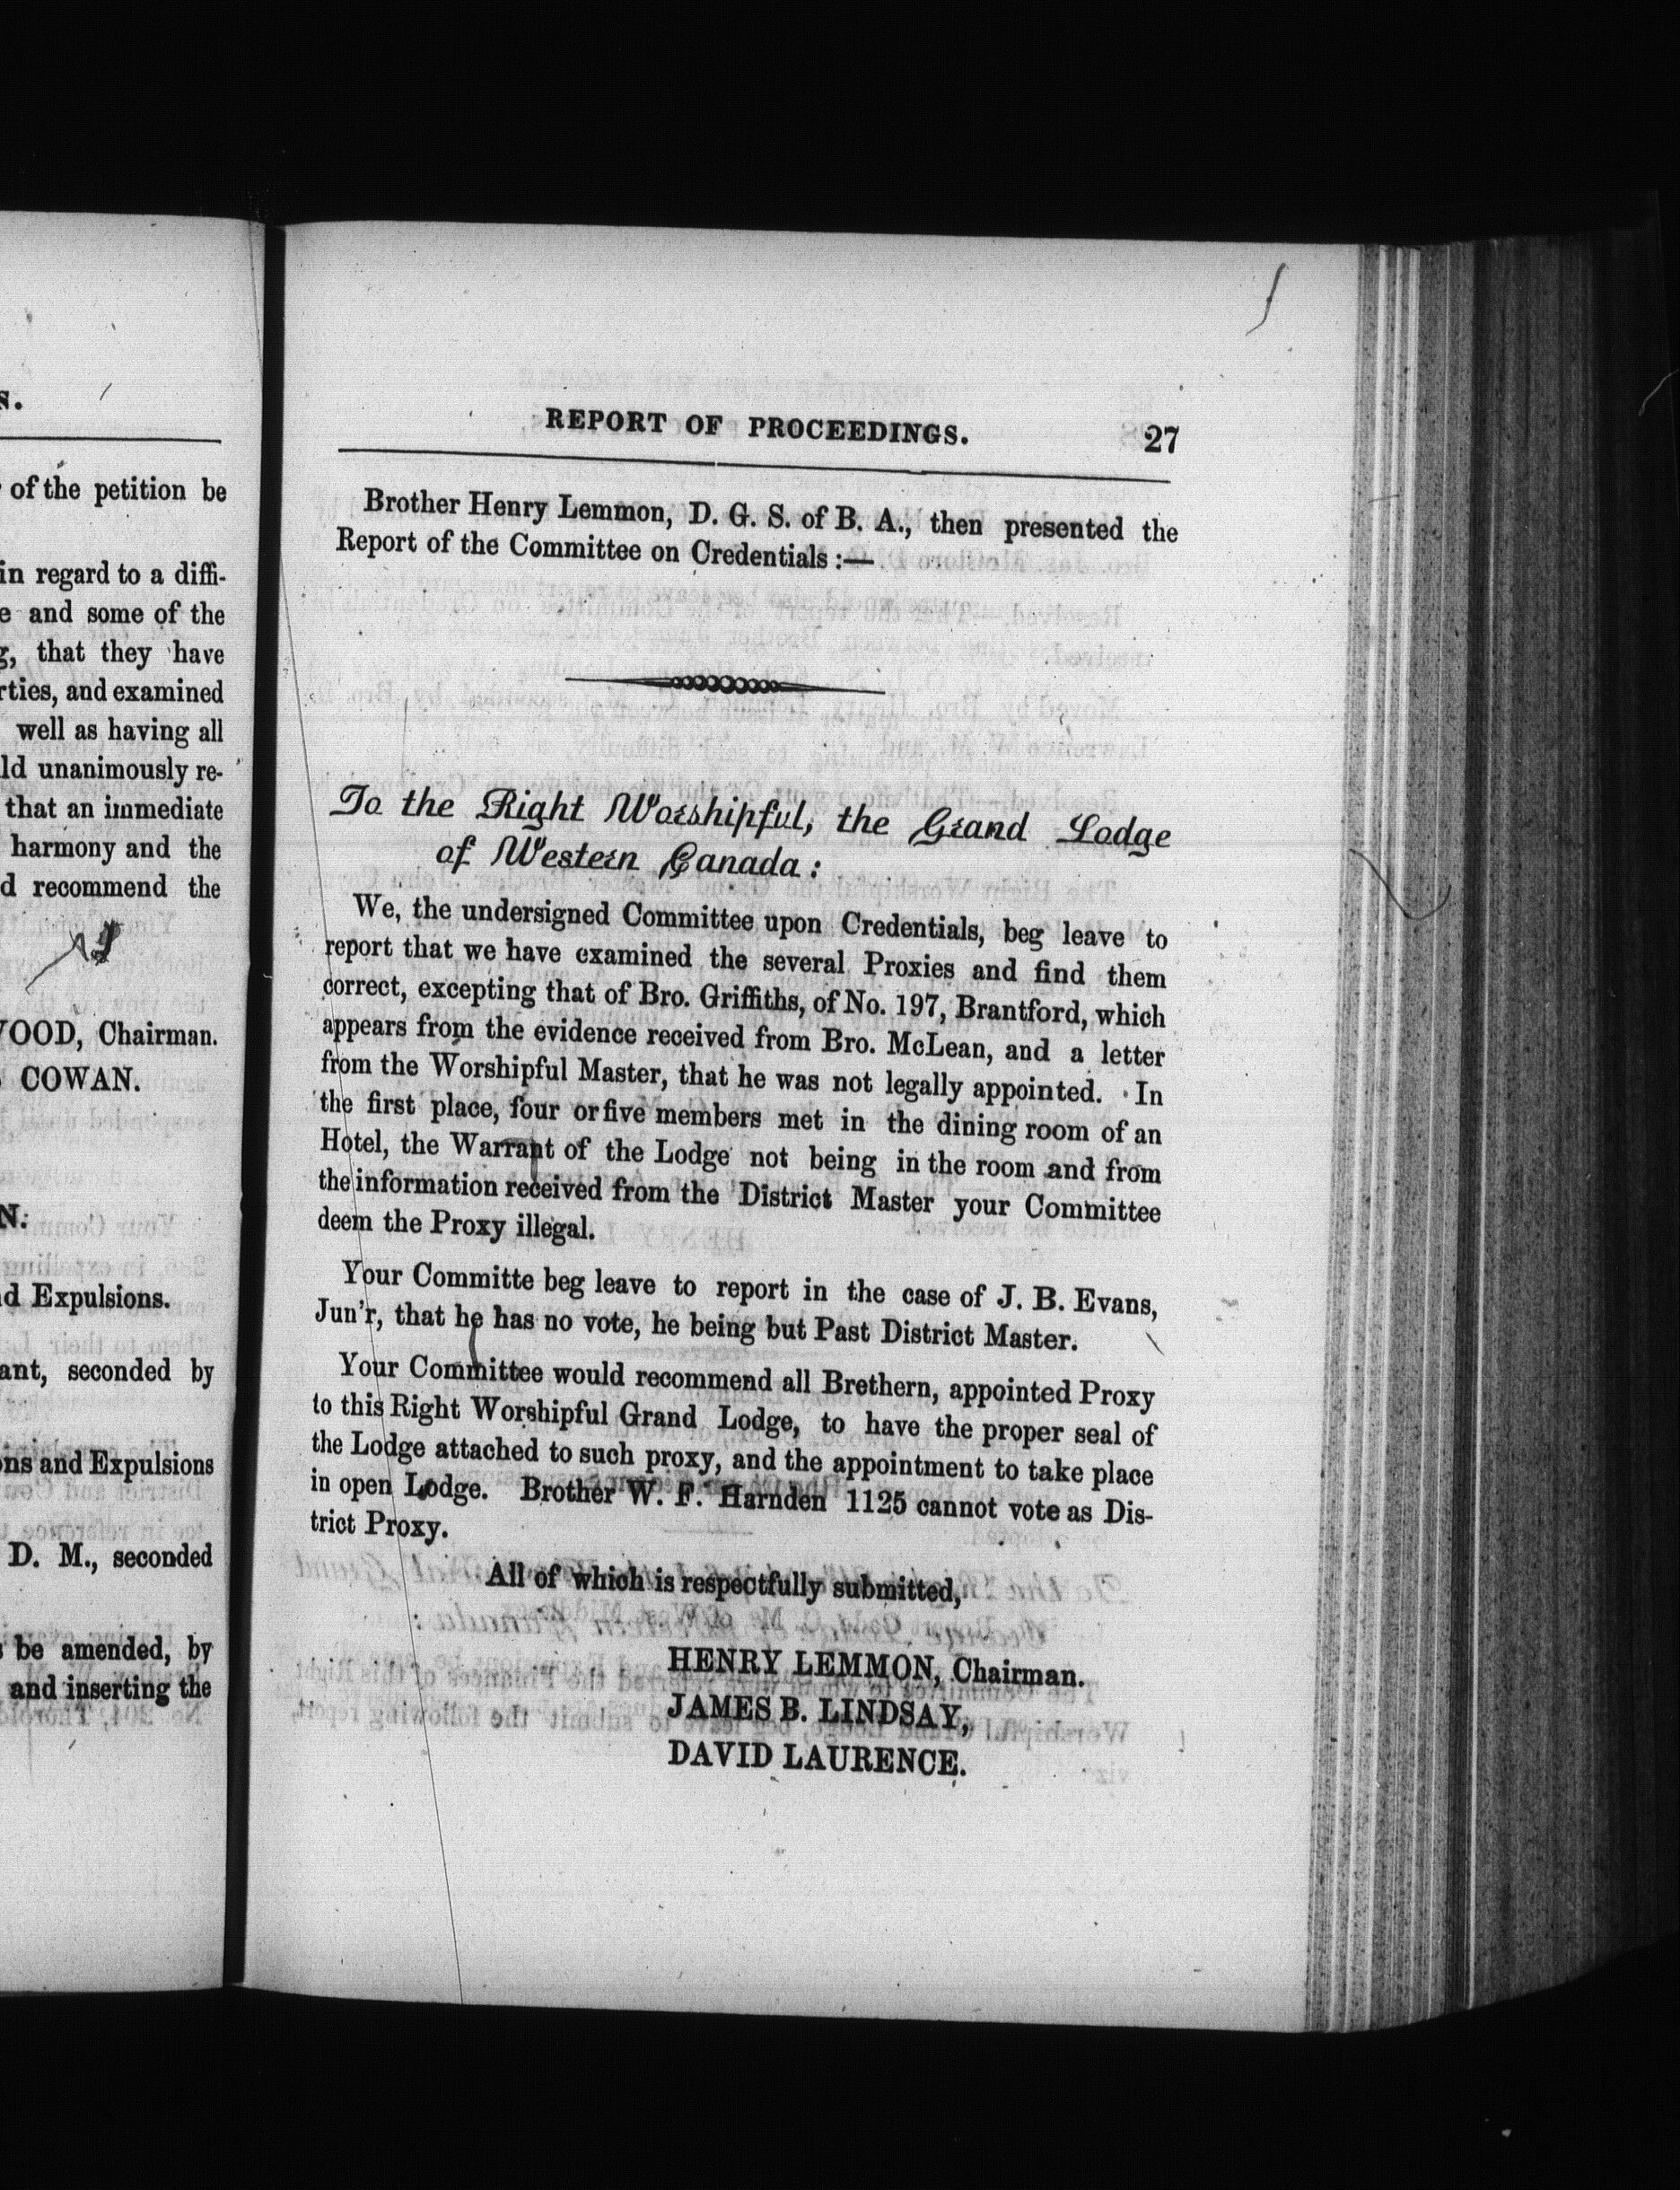 s.
of the petition be
in regard to a diffi-
e and some of the
g, that they have
rties, and examined
well as having all
ld unanimously re-
that an immediate
harmony and the
d recommend the
WOOD, Chairman.
COWAN.
N:
d Expulsions.
ant, seconded by
ons and Expulsions
D. M., seconded
s be amended, by
and inserting the
REPORT OF PROCEEDINGS. 27
Brother Henry Lemmon, D. G. S. of B. A., then presented the
Report of the Committee on Credentials :—
To the Right Worshipful, the Grand Lodge
of Western Canada :
We, the undersigned Committee upon Credentials, beg leave to
report that we have examined the several Proxies and find them
correct, excepting that of Bro. Griffiths, of No. 197, Brantford, which
appears from the evidence received from Bro. McLean, and a letter
from the Worshipful Master, that he was not legally appointed. In
the first place, four or five members met in the dining room of an
Hotel, the Warrant of the Lodge not being in the room and from
the information received from the District Master your Committee
deem the Proxy illegal.
Your Committe beg leave to report in the case of J. B. Evans,
Jun'r, that he has no vote, he being but Past District Master.
Your Committee would recommend all Brethern, appointed Proxy
to this Right Worshipful Grand Lodge, to have the proper seal of
the Lodge attached to such proxy, and the appointment to take place
in open Lodge. Brother W. F. Harnden 1125 cannot vote as Dis-
trict Proxy.
All of which is respectfully submitted,
HENRY LEMMON, Chairman.
JAMES B. LINDSAY,
DAVID LAURENCE.